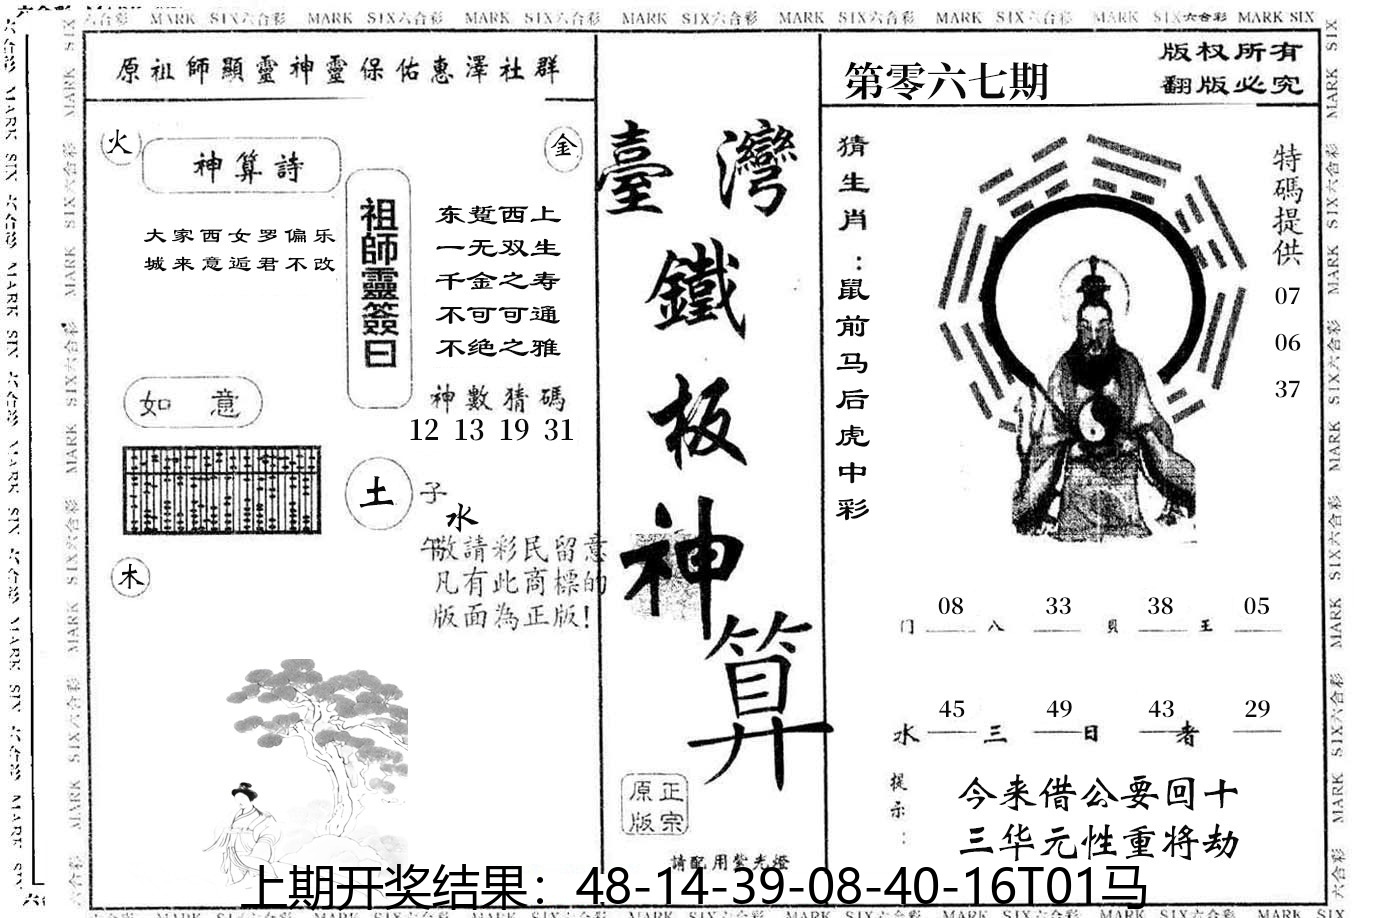 原祖師顯靈神靈保佑惠澤社群
火
金
神算詩
大家西女罗偏乐
城来意逅君不改
祖師靈簽曰
东蜇西上
一无双生
千金之寿
不可可通
不绝之雅
神數猜碼
12 13 19 31
如意
土
子
水
午
木
敬請彩民留意
凡有此商標的
版面為正版!
臺灣
鐵
板
神
算
正宗
原版
請配用紫光燈
第零六七期
版权所有
翻版必究
猜生肖:鼠前马后虎中彩
特碼提供
07
06
37
08 33 38 05
门 八 貝 王
45 49 43 29
水 三 日 者
提示:
今来借公要回十
三华元性重将劫
上期开奖结果：48-14-39-08-40-16T01马
MARK SIX六合彩 MARK SIX六合彩 MARK SIX六合彩 MARK SIX六合彩 MARK SIX六合彩 MARK SIX六合彩 MARK SIX六合彩 MARK SIX